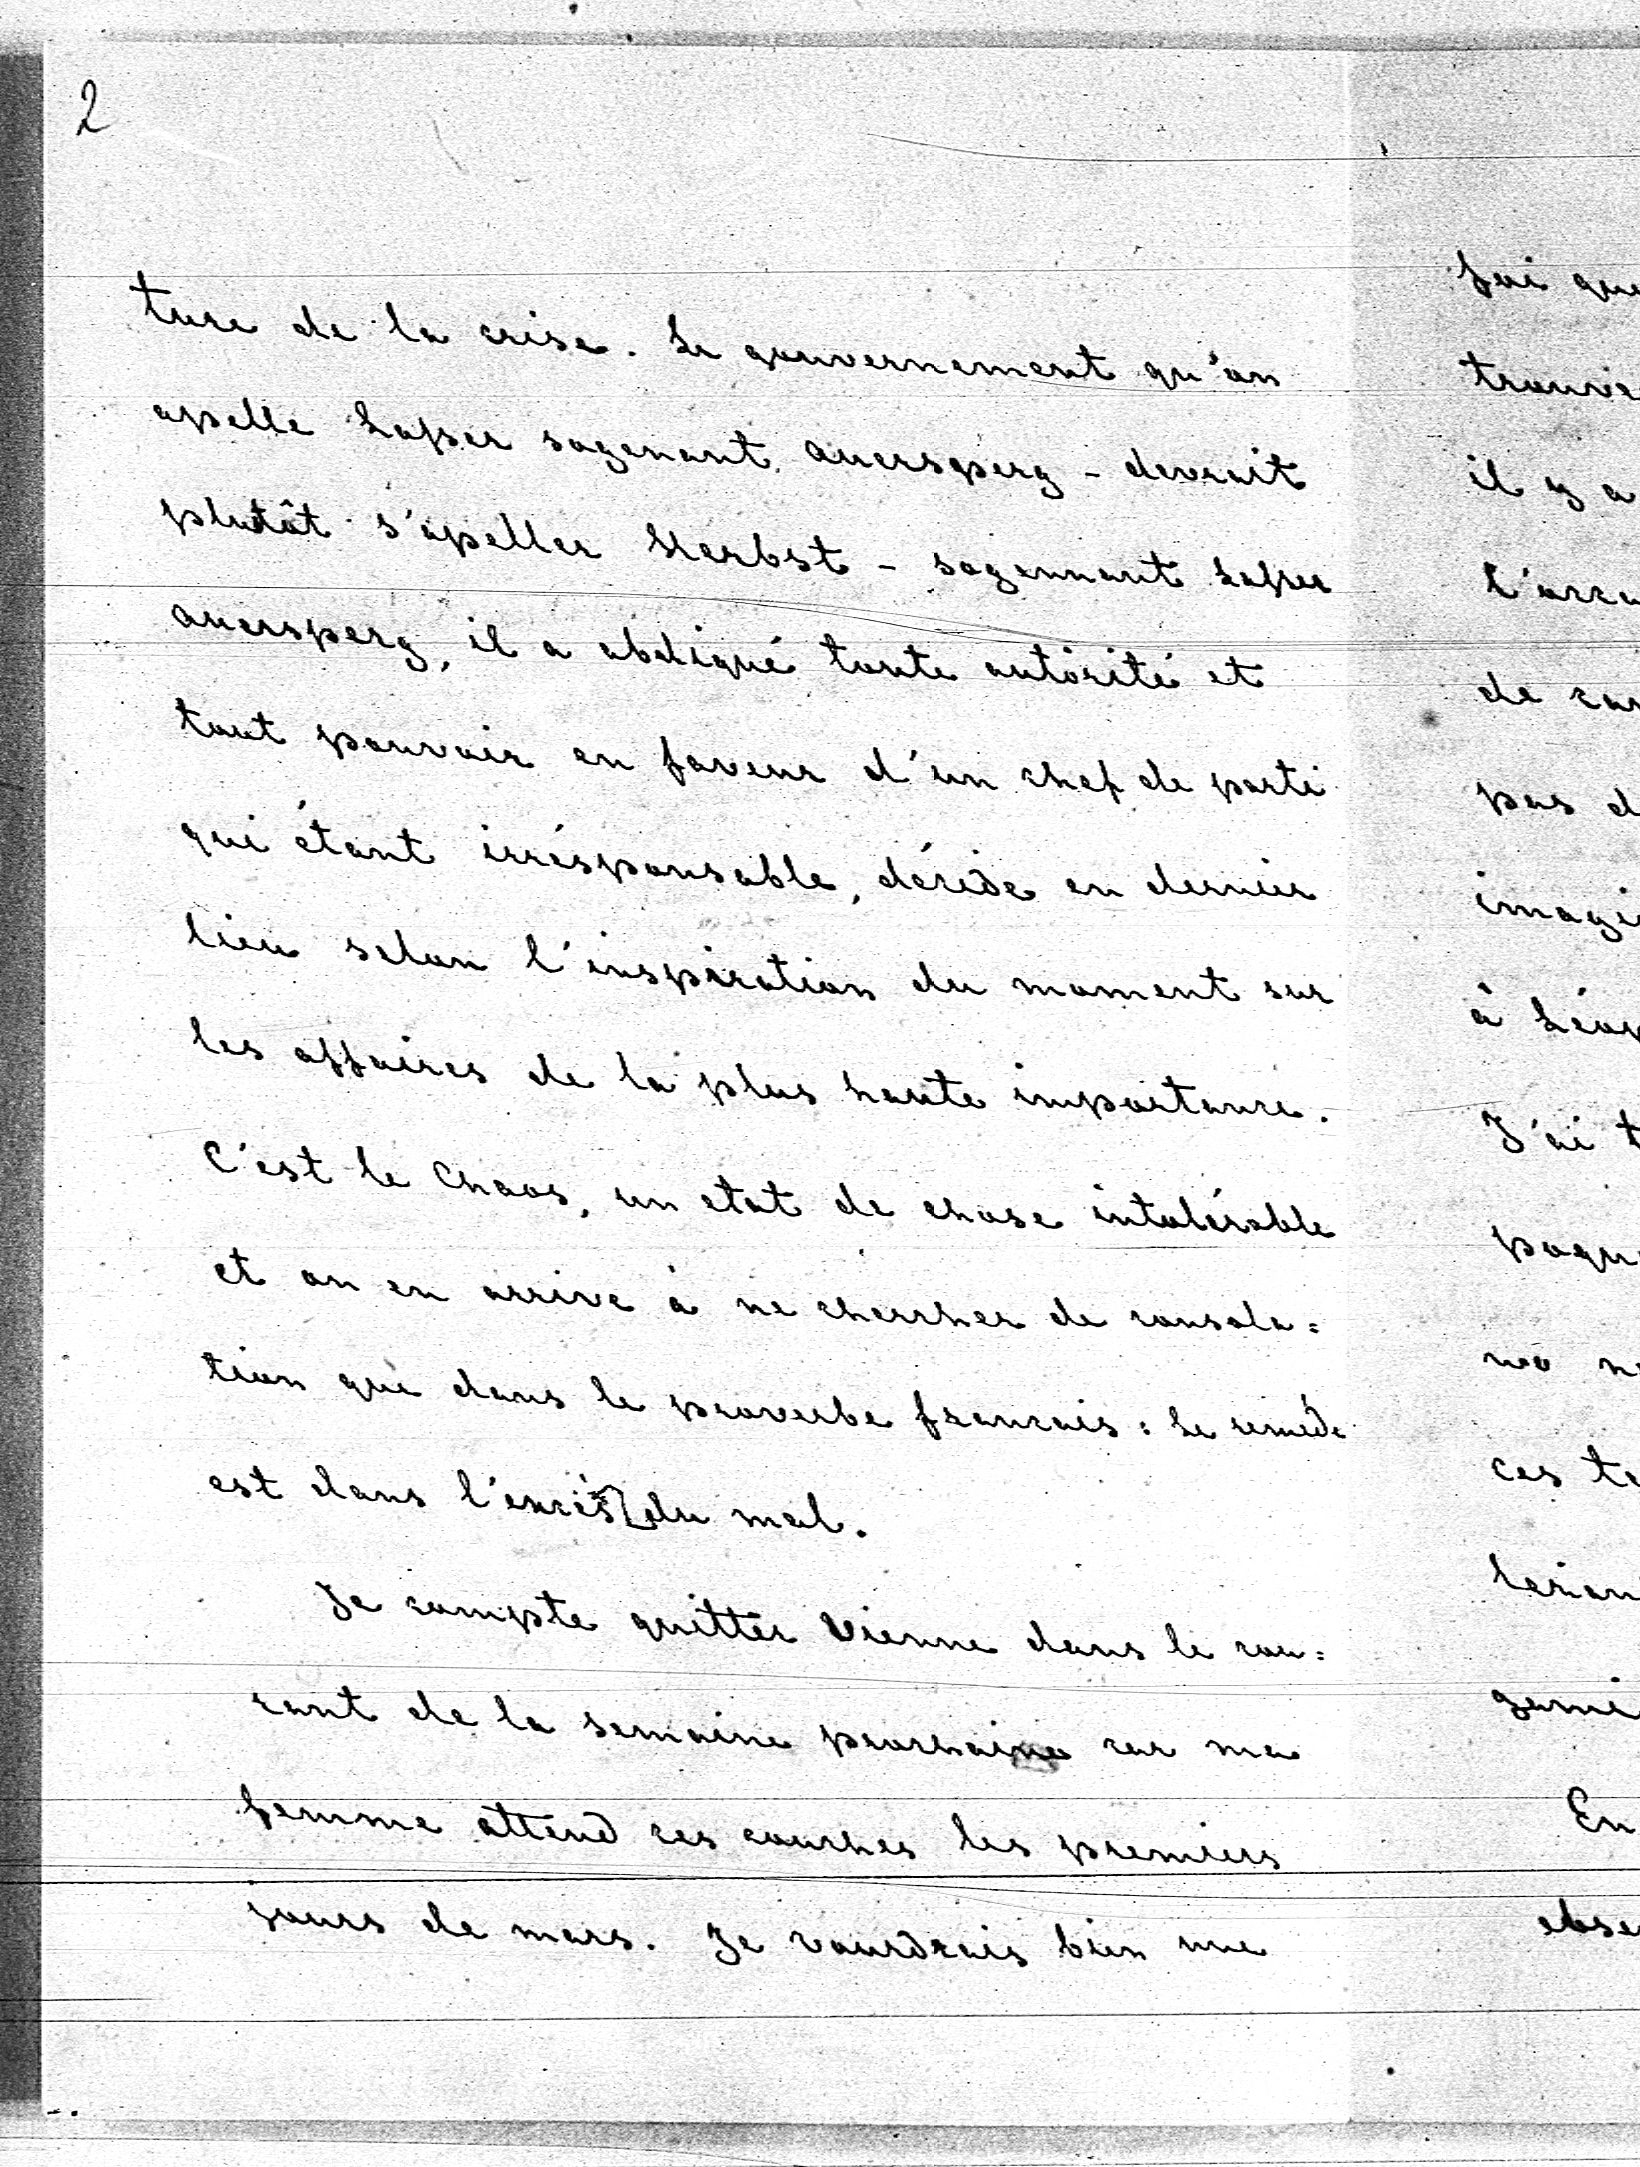 2
ture de la crise. Le gouvernement qu'on
apelle Lasser sogenant Auersperg - devrait
plutôt s'apeller Herbst - sogennant Lasser
Auersperg, il a abdiqué toute autorité et
tout pouvoir en faveur d'un chef de parti
qui étant irrésponsable, décide en dernier
lieu selon l'inspiration du moment sur
les affaires de la plus haute importance.
C'est le Chaos, un etat de chose intolérable
et on en arrive à ne chercher de consola=
tion que dans le proverbe francais: Le remède
est dans l'excès du mal.
Je compte quitter Vienne dans le cou=
rant de la semaine prochaine car ma
femme attend ces couches les premiers
jours de mars. Je voudrais bien me
J'ai que
trouve
il y a
de
pas d
imagi
à Léop
J'ai t
ces te
En
obse